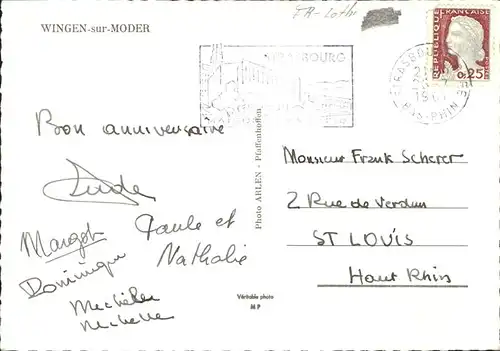 WINGEN-sur-MODER
STRASBOURG
REPUBLIQUE FRANÇAISE
0,25
BAS-RHIN
Bon anniversaire
Margot
Paule et
Nathalie
Dominique
Michèle
Michelle
Photo ARLEN - Pfaffenhoffen
Véritable photo
M P
Monsieur Frank Scherer
2 Rue de Verdun
ST LOUIS
Haut Rhin